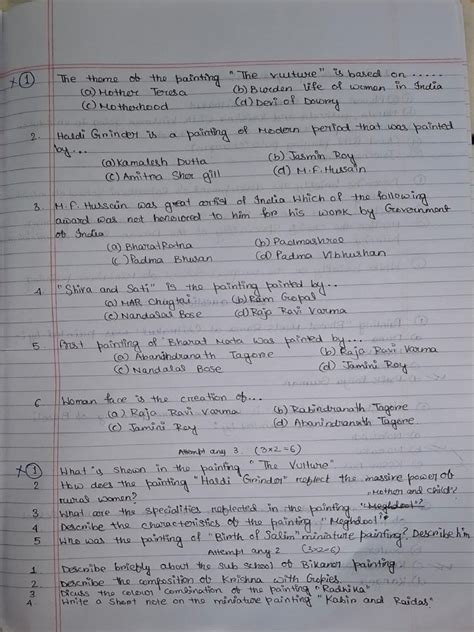 x ① The theme ob the painting "The vulture" is based on .....
(a) Mother Teresa (b) Burden life of women in India
(c) Motherhood (d) Devi of Downy
2. Haldi Grinder is a painting of Modern period that was painted
by...
(a) Kamalesh Dutta (b) Jasmin Roy
(c) Amitna Sher gill (d) M.F. Hussain
3. M.F. Hussain was great artist of India. Which of the following
award was not honoured to him for his work by Government
of India
(a) Bharat Ratna (b) Padmashree
(c) Padma Bhusan (d) Padma Vibhushan
4. "Shiva and Sati" is the painting painted by..
(a) MAR Chugtai (b) Ram Gopal
(c) Nandalal Bose (d) Raja Ravi Varma
5. First painting of Bharat Mata was painted by...
(a) Abanindranath Tagore (b) Raja Ravi Varma
(c) Nandalal Bose (d) Jamini Roy
6. Woman face is the creation of...
(a) Raja Ravi Varma (b) Rabindranath Tagore
(c) Jamini Roy (d) Abanindranath Tagore
Attempt any 3. (3x2=6)
x ① What is shown in the painting "The Vulture"
2 How does the painting "Haldi Grinder" reflect the massive power of
rural women? "Mother and Child"?
3 What are the specialities reflected in the painting "Meghdoot"?
4 Describe the characteristics of the painting "Meghdoot"
5 Who was the painting of "Birth of Salim" miniature painting? Describe him
Attempt any 2 (3x2=6)
1 Describe briefly about the sub school of Bikaner painting
2. Describe the composition of Krishna with Gopies
3 Dicuss the colour combination of the painting "Radhika"
4. Write a short note on the miniature painting "Kabir and Raidas"